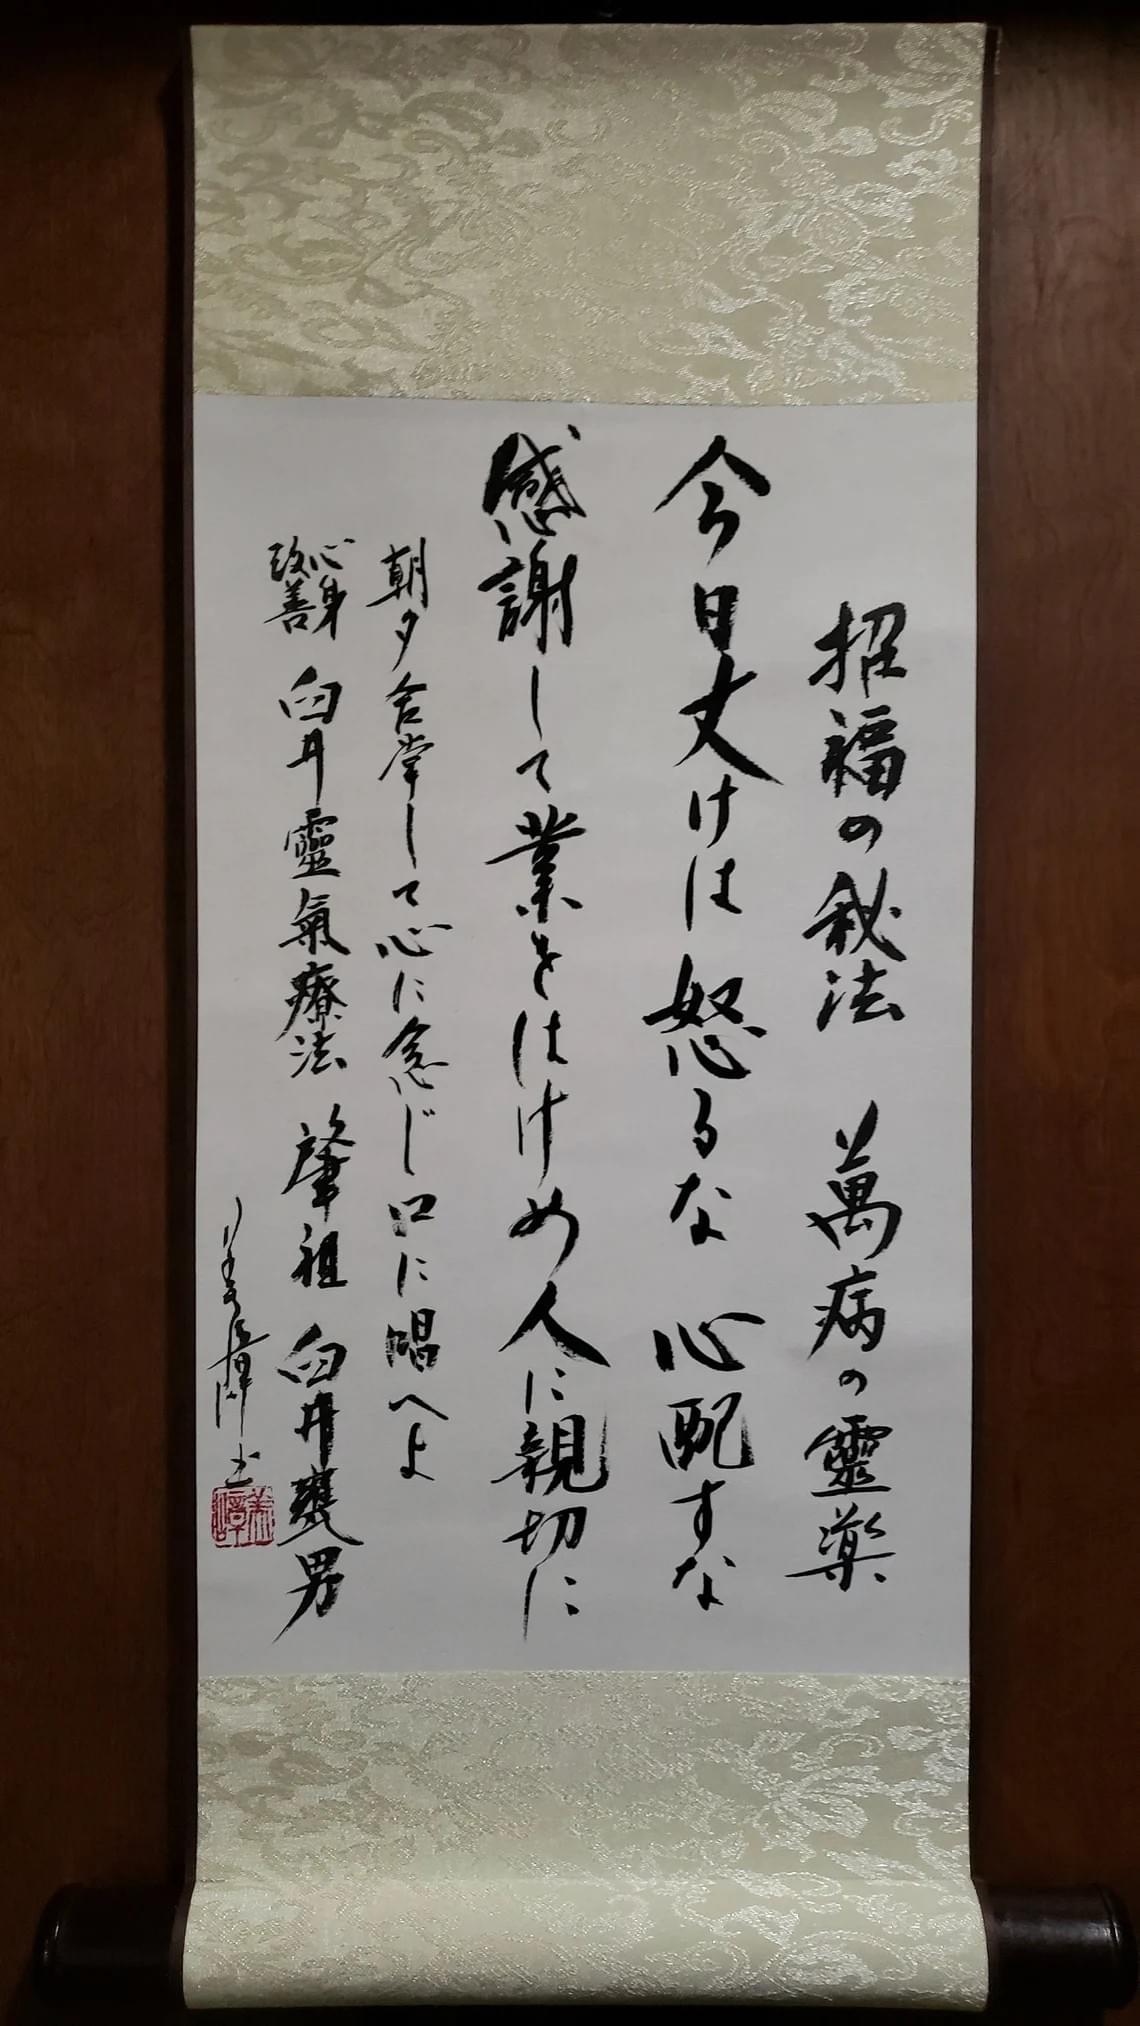 招福の秘法　萬病の靈薬
今日丈けは怒るな　心配すな
感謝して業をはけめ人に親切に
朝夕合掌して心に念じ口に唱へよ
心身改善　臼井靈氣療法　肇祖　臼井甕男